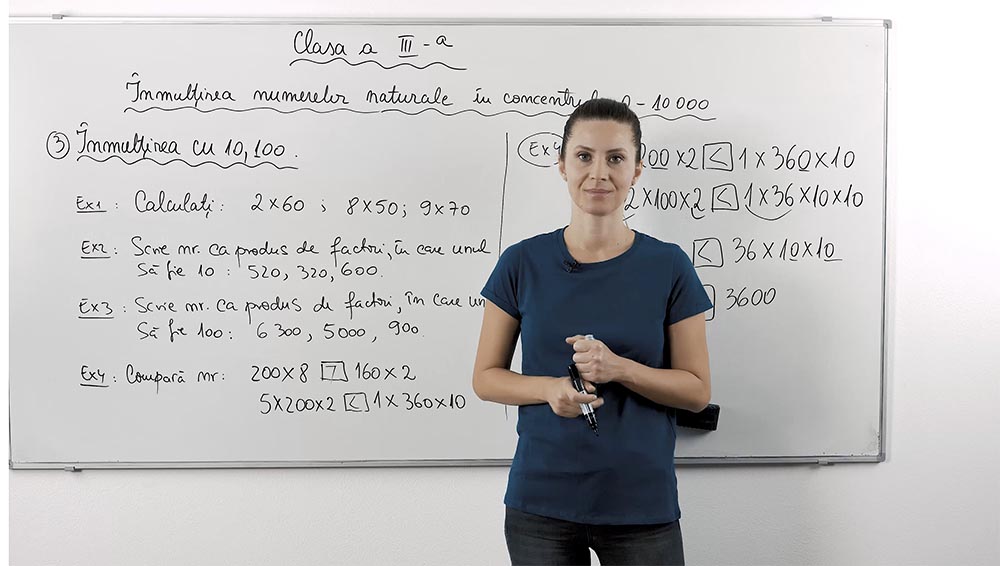 Clasa a III-a
Înmulțirea numerelor naturale în concentrul 0-10 000
③ Înmulțirea cu 10, 100.
Ex1: Calculați: 2×60 ; 8×50; 9×70
Ex2: Scrie nr. ca produs de factori, în care unul
să fie 10: 520, 320, 600.
Ex3: Scrie nr. ca produs de factori, în care un
să fie 100: 6 300, 5000, 900.
Ex4: Compară nr: 200×8 > 160×2
5×200×2 < 1×360×10
Ex4
200×2 < 1×360×10
2×100×2 < 1×36×10×10
< 36×10×10
3600